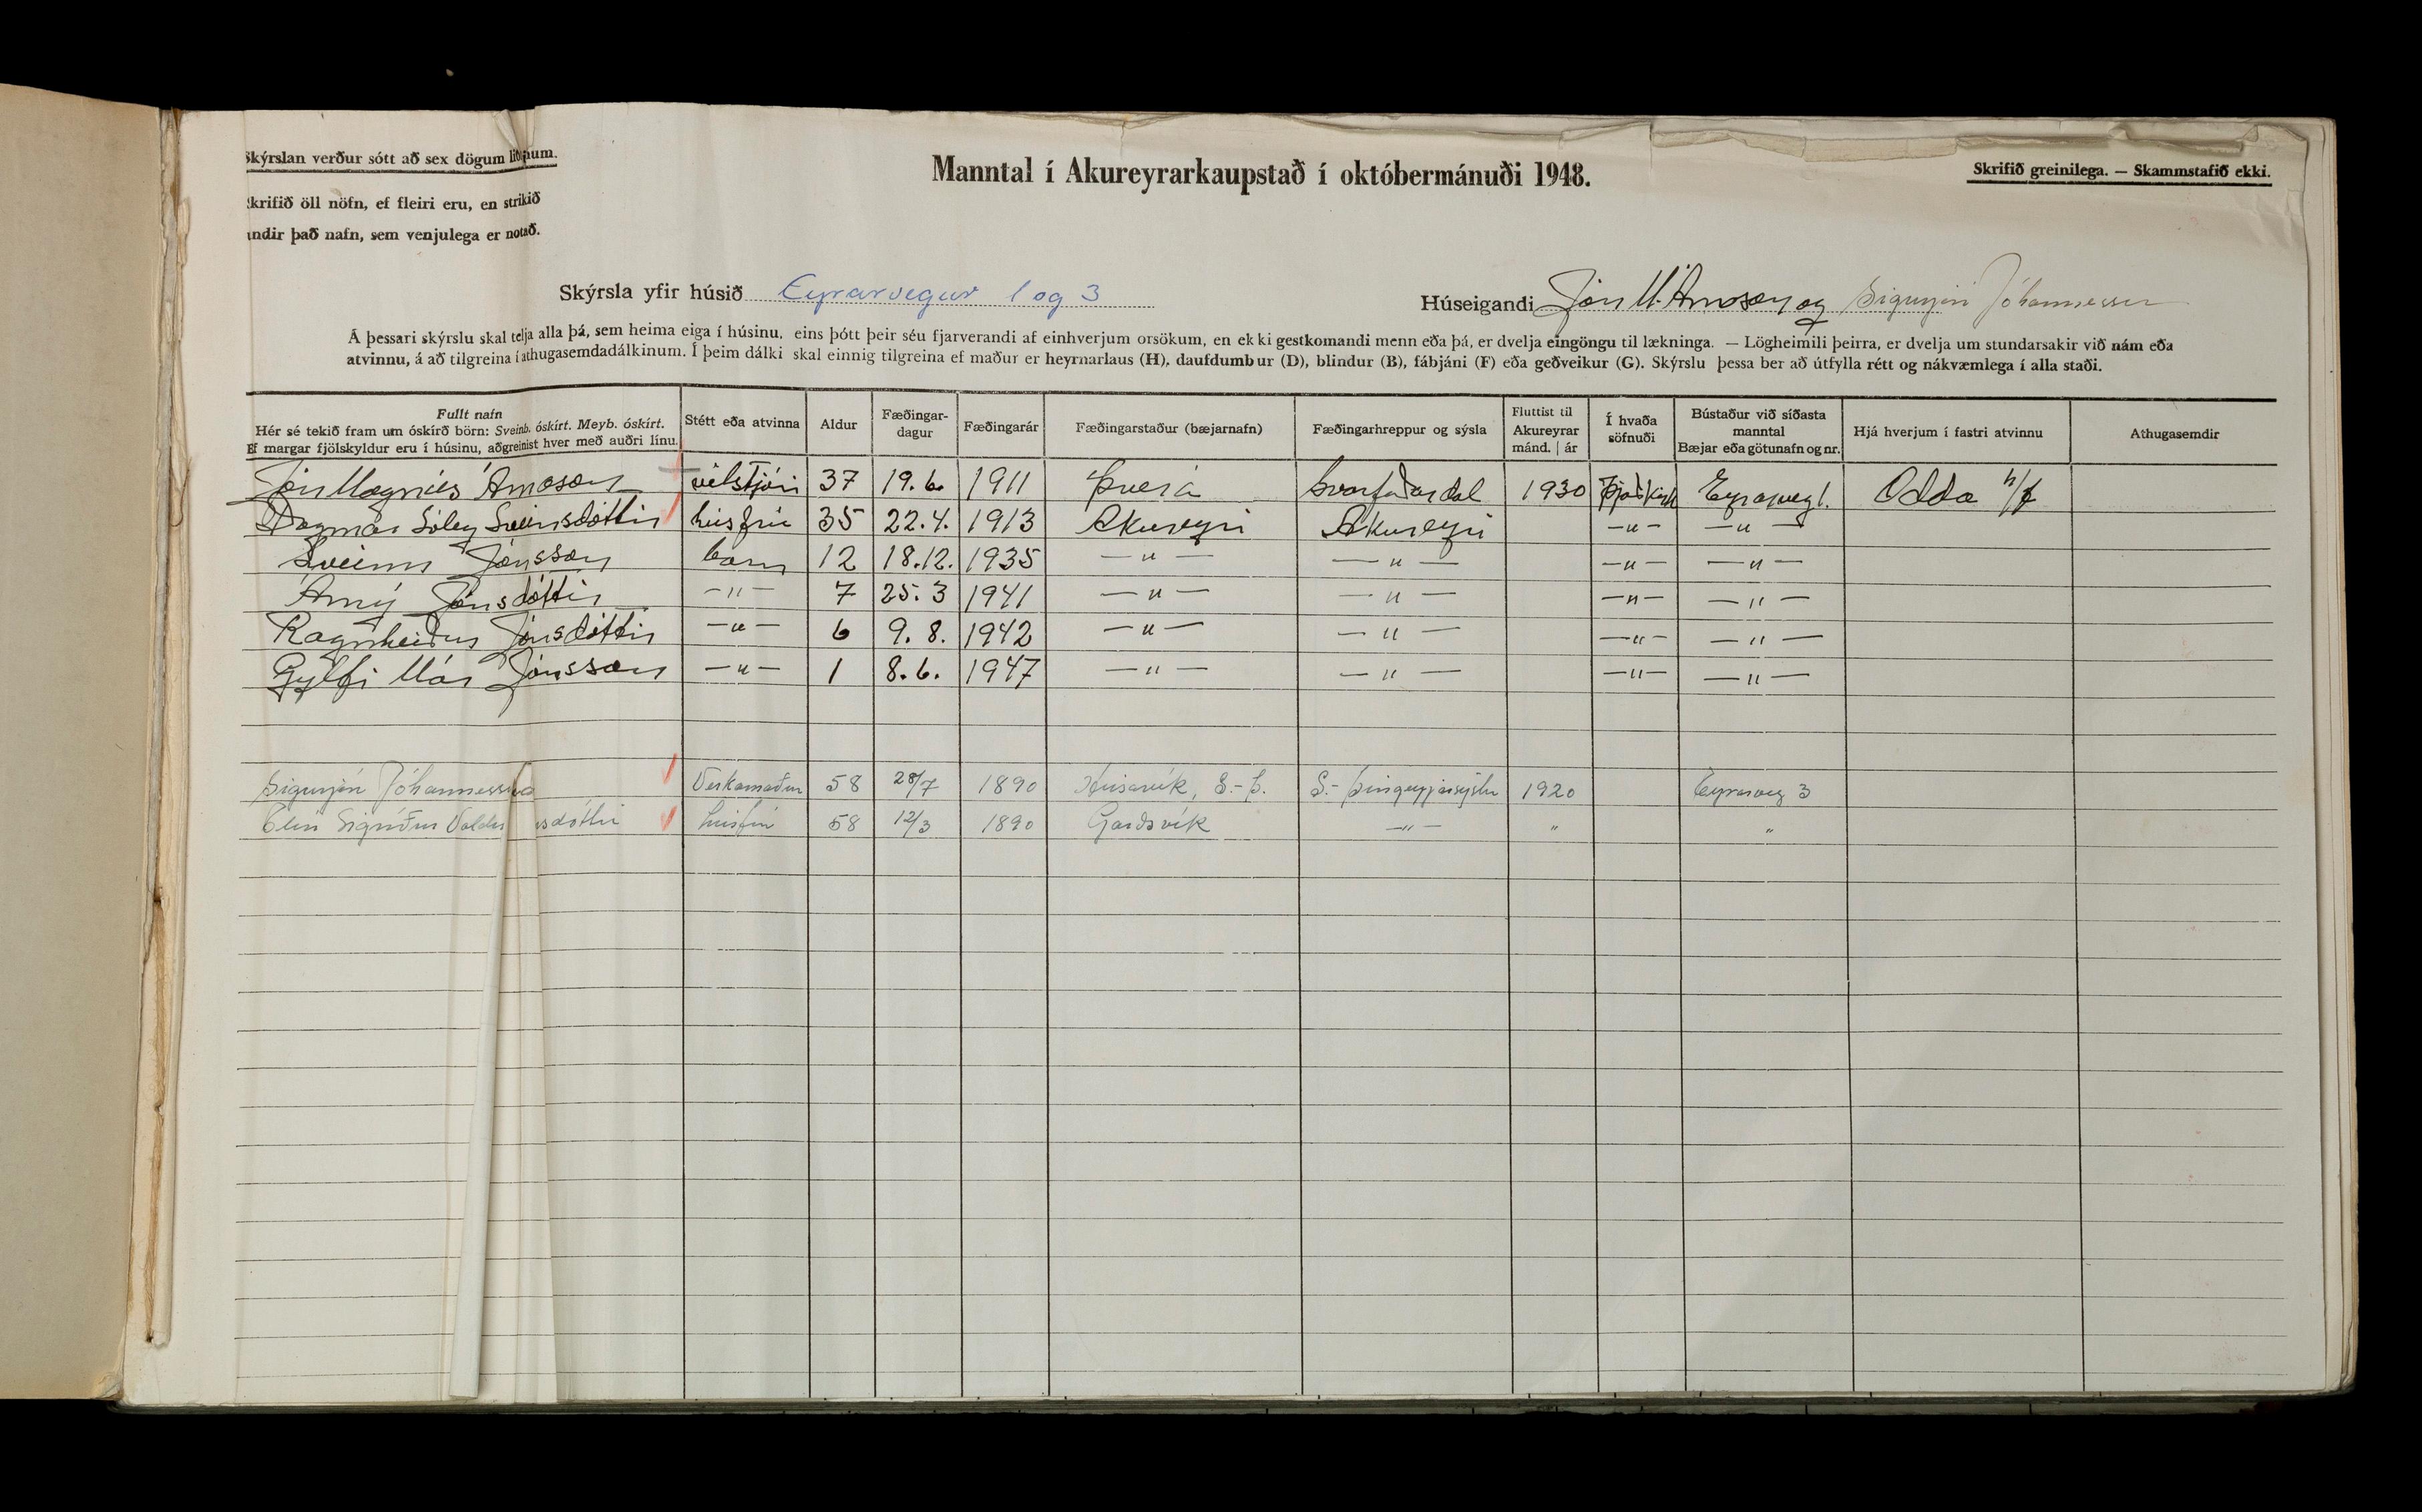 Skýrslan verður sótt að sex dögum liðnum.
Skrifið öll nöfn, ef fleiri eru, en strikið
undir það nafn, sem venjulega er notað.
Manntal í Akureyrarkaupstað í októbermánuði 1948.
Skrifið greinilega. — Skammstafið ekki.
Skýrsla yfir húsið Eyrarvegur 1 og 3
Húseigandi Jón M. Árnason og Sigurjón Jóhannesson
Á þessari skýrslu skal telja alla þá, sem heima eiga í húsinu, eins þótt þeir séu fjarverandi af einhverjum orsökum, en ekki gestkomandi menn eða þá, er dvelja eingöngu til lækninga. — Lögheimili þeirra, er dvelja um stundarsakir við nám eða
atvinnu, á að tilgreina í athugasemdadálkinum. Í þeim dálki skal einnig tilgreina ef maður er heyrnarlaus (H), daufdumbur (D), blindur (B), fábjáni (F) eða geðveikur (G). Skýrslu þessa ber að útfylla rétt og nákvæmlega í alla staði.
Fullt nafn Hér sé tekið fram um óskírð börn: Sveinb. óskírt. Meyb. óskírt. Ef margar fjölskyldur eru í húsinu, aðgreinist hver með auðri línu. Stétt eða atvinna Aldur Fæðingar- dagur Fæðingarár Fæðingarstaður (bæjarnafn) Fæðingarhreppur og sýsla Fluttist til Akureyrar mánd. | ár Í hvaða söfnuði Bústaður við síðasta manntal Bæjar eða götunafn og nr. Hjá hverjum í fastri atvinnu Athugasemdir
Jón Magnús Árnason vélstjóri 37 19.6. 1911 Þverá Svarfaðardal 1930 Þjóðkirk Eyrarveg 1. Odda h/f
Dagmar Sóley Sveinsdóttir húsfrú 35 22.4. 1913 Akureyri Akureyri —"— —"—
Sveinn Jónsson barn 12 18.12. 1935 —"— —"— —"— —"—
Árný Jónsdóttir —"— 7 25.3 1941 —"— —"— —"— —"—
Ragnheiður Jónsdóttir —"— 6 9.8. 1942 —"— —"— —"— —"—
Gylfi Már Jónsson —"— 1 8.6. 1947 —"— —"— —"— —"—
Sigurjón Jóhannesson Verkamaður 58 28/7 1890 Húsavík, S.-Þ. S.-Þingeyjarsýslu 1920 Eyrarveg 3
Elín Sigríður Valde sdóttir húsfrú 58 12/3 1890 Garðsvík —"— " "